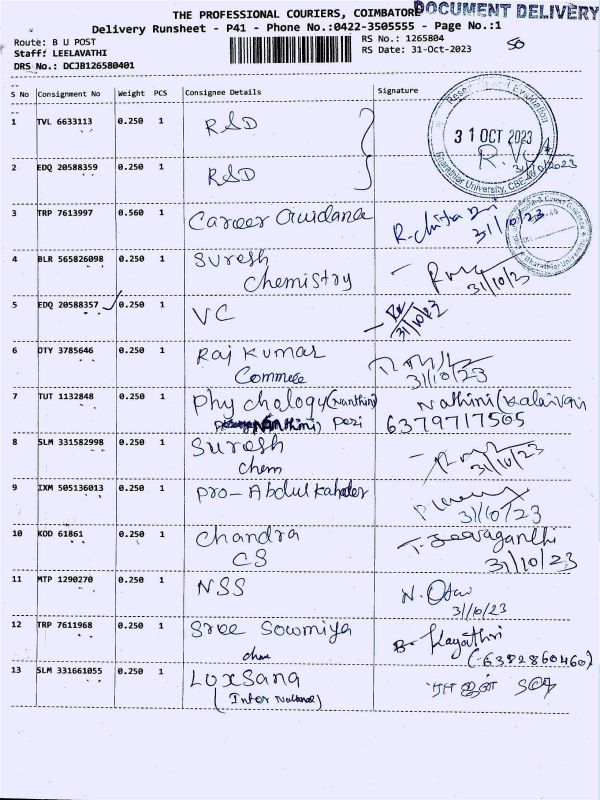 THE PROFESSIONAL COURIERS, COIMBATORE DOCUMENT DELIVERY
Delivery Runsheet - P41 - Phone No.:0422-3505555 - Page No.:1
Route: B U POST
RS No.: 1265804
50
Staff: LEELAVATHI
RS Date: 31-Oct-2023
DRS No.: DCJB126580401
S No Consignment No Weight PCS Consignee Details Signature
1 TVL 6633113 0.250 1 R&D
31 OCT 2023
Bharathiar University, CBE-46
2 EDQ 20588359 0.250 1 R&D 31/10/2023
3 TRP 7613997 0.560 1 Career Guidance 31/10/23
4 BLR 565826098 0.250 1 Suresh
Chemistry 31/10/23
5 EDQ 20588357 0.250 1 VC 31/10/23
6 OTY 3785646 0.250 1 Raj Kumar
Commee 31/10/23
7 TUT 1132848 0.250 1 Phychology (Nanthini) Nathini (Kalaivani
6379717505
8 SLM 331582998 0.250 1 Suresh
chem 31/10/23
9 IXM 505136013 0.250 1 Pro-Abdul Kahader
31/10/23
10 KOD 61861 0.250 1 Chandra
CS T. Jeevaganthi
31/10/23
11 MTP 1290270 0.250 1 NSS
31/10/23
12 TRP 7611968 0.250 1 Sree Sowmiya
(6382860460)
13 SLM 331661055 0.250 1 Luxsana